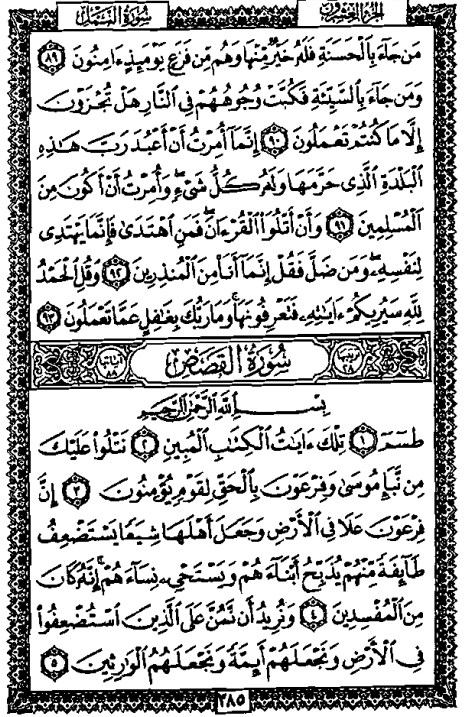 الجزء العشرون
سورة النمل
مَن جَآءَ بِٱلْحَسَنَةِ فَلَهُۥ خَيْرٌ مِّنْهَا وَهُم مِّن فَزَعٍ يَوْمَئِذٍ ءَامِنُونَ ٨٩
وَمَن جَآءَ بِٱلسَّيِّئَةِ فَكُبَّتْ وُجُوهُهُمْ فِى ٱلنَّارِ هَلْ تُجْزَوْنَ
إِلَّا مَا كُنتُمْ تَعْمَلُونَ ٩٠ إِنَّمَآ أُمِرْتُ أَنْ أَعْبُدَ رَبَّ هَـٰذِهِ
ٱلْبَلْدَةِ ٱلَّذِى حَرَّمَهَا وَلَهُۥ كُلُّ شَىْءٍ وَأُمِرْتُ أَنْ أَكُونَ مِنَ
ٱلْمُسْلِمِينَ ٩١ وَأَنْ أَتْلُوَا۟ ٱلْقُرْءَانَ فَمَنِ ٱهْتَدَىٰ فَإِنَّمَا يَهْتَدِى
لِنَفْسِهِۦ وَمَن ضَلَّ فَقُلْ إِنَّمَآ أَنَا۠ مِنَ ٱلْمُنذِرِينَ ٩٢ وَقُلِ ٱلْحَمْدُ
لِلَّهِ سَيُرِيكُمْ ءَايَـٰتِهِۦ فَتَعْرِفُونَهَا وَمَا رَبُّكَ بِغَـٰفِلٍ عَمَّا تَعْمَلُونَ ٩٣
ترتيبها ٢٨ سُورَةُ ٱلْقَصَصِ آياتها ٨٨
بِسْمِ ٱللَّهِ ٱلرَّحْمَـٰنِ ٱلرَّحِيمِ
طسٓمٓ ١ تِلْكَ ءَايَـٰتُ ٱلْكِتَـٰبِ ٱلْمُبِينِ ٢ نَتْلُوا۟ عَلَيْكَ
مِن نَّبَإِ مُوسَىٰ وَفِرْعَوْنَ بِٱلْحَقِّ لِقَوْمٍ يُؤْمِنُونَ ٣ إِنَّ
فِرْعَوْنَ عَلَا فِى ٱلْأَرْضِ وَجَعَلَ أَهْلَهَا شِيَعًا يَسْتَضْعِفُ
طَآئِفَةً مِّنْهُمْ يُذَبِّحُ أَبْنَآءَهُمْ وَيَسْتَحْىِۦ نِسَآءَهُمْ إِنَّهُۥ كَانَ
مِنَ ٱلْمُفْسِدِينَ ٤ وَنُرِيدُ أَن نَّمُنَّ عَلَى ٱلَّذِينَ ٱسْتُضْعِفُوا۟
فِى ٱلْأَرْضِ وَنَجْعَلَهُمْ أَئِمَّةً وَنَجْعَلَهُمُ ٱلْوَٰرِثِينَ ٥
٣٨٥